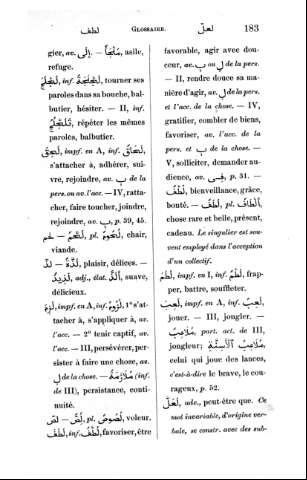 لطف GLOSSAIRE. لعلّ 183
gier, av. إلى. — مَلْجَأٌ, asile,
refuge.
لَجْلَجَ, inf. لَجْلَجَةٌ, tourner ses
paroles dans sa bouche, bal-
butier, hésiter. — II, inf.
تَلَجْلُجٌ, répéter les mêmes
paroles, balbutier.
لَحِقَ, impf. en A, inf. لَحَاقٌ,
s'attacher à, adhérer, sui-
vre, rejoindre, av. ب de la
pers. ou av. l'acc. — IV, ratta-
cher, faire toucher, joindre,
rejoindre, av. ب, p. 39, 45.
لحم — لَحْمٌ, pl. لُحُومٌ, chair,
viande.
لذّ — لَذَّةٌ, plaisir, délices. —
لَذِيذٌ, adj., élat. أَلَذُّ, suave,
délicieux.
لَزِمَ, impf. en A, inf. لُزُومٌ, 1° s'at-
tacher à, s'appliquer à, av.
l'acc. — 2° tenir captif, av.
l'acc. — III, persévérer, per-
sister à faire une chose, av.
ل de la chose. — مُلَازَمَةٌ (inf.
de III), persistance, conti-
nuité.
لصّ — لِصٌّ, pl. لُصُوصٌ, voleur.
لَطَفَ, inf. لُطْفٌ, favoriser, être
favorable, agir avec dou-
ceur, av. ب ou ل de la pers.
— II, rendre douce sa ma-
nière d'agir, av. ل de la pers.
et l'acc. de la chose. — IV,
gratifier, combler de biens,
favoriser, av. l'acc. de la
pers. et ب de la chose. —
V, solliciter, demander au-
dience, av. فى, p. 31. —
لُطْفٌ, bienveillance, grâce,
bonté. — لَطَفٌ, pl. أَلْطَافٌ,
chose rare et belle, présent,
cadeau. Le singulier est sou-
vent employé dans l'acception
d'un collectif.
لَطَمَ, impf. en I, inf. لَطْمٌ, frap-
per, battre, souffleter.
لَعِبَ, impf. en A, inf. لَعِبٌ,
jouer. — III, jongler. —
مُلَاعِبٌ, part. act. de III,
jongleur; مُلَاعِبُ ٱلْأَسِنَّةِ,
celui qui joue des lances,
c'est-à-dire le brave, le cou-
rageux, p. 52.
لَعَلَّ, adv., peut-être que. Ce
mot invariable, d'origine ver-
bale, se constr. avec des sub-